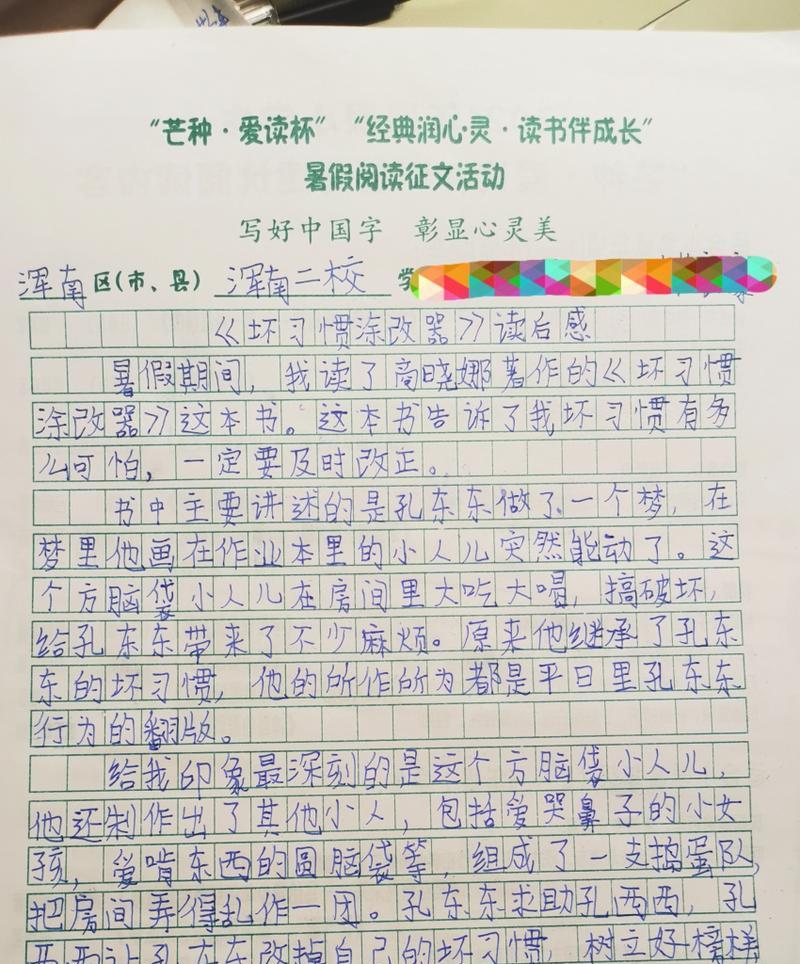 “芒种·爱读杯”“经典润心灵·读书伴成长”
暑假阅读征文活动
写好中国字 彰显心灵美
浑南区(市、县) 浑南二校 学
《坏习惯涂改器》读后感
暑假期间，我读了商晓娜著作的《坏习惯
涂改器》这本书。这本书告诉了我坏习惯有多
么可怕，一定要及时改正。
书中主要讲述的是孔东东做了一个梦，在
梦里他画在作业本里的小人儿突然能动了。这
个方脑袋小人儿在房间里大吃大喝，搞破坏，
给孔东东带来了不少麻烦。原来他继承了孔东
东的坏习惯，他的所作所为都是平日里孔东东
行为的翻版。
给我印象最深刻的是这个方脑袋小人儿，
他还制作出了其他小人，包括爱哭鼻子的小女
孩，爱啃东西的圆脑袋等，组成了一支捣蛋队，
把房间弄得乱作一团。孔东东求助孔西西，孔
西西让孔东东改掉自己的坏习惯，树立好榜样